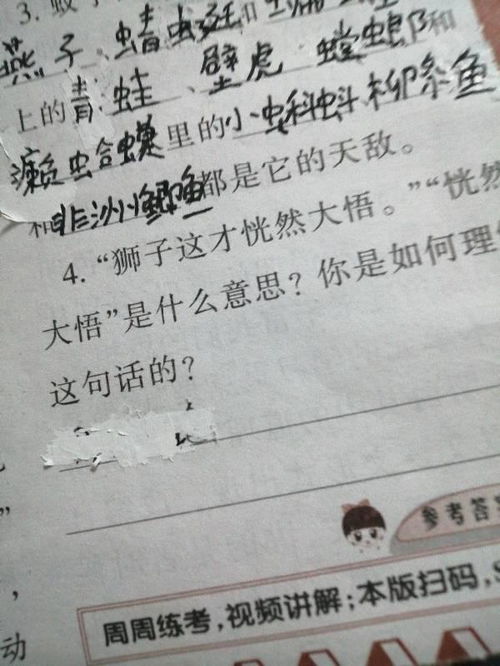 3.
燕子、蜻虫廷和
上的青蛙、壁虎、螳螂和
癞虫合蟆里的小虫科蚪、柳条鱼
和非洲鲫鱼都是它的天敌。
4.“狮子这才恍然大悟。”“恍然
大悟”是什么意思？你是如何理
这句话的？
参考答
周周练考，视频讲解；本版扫码，
”
，
动